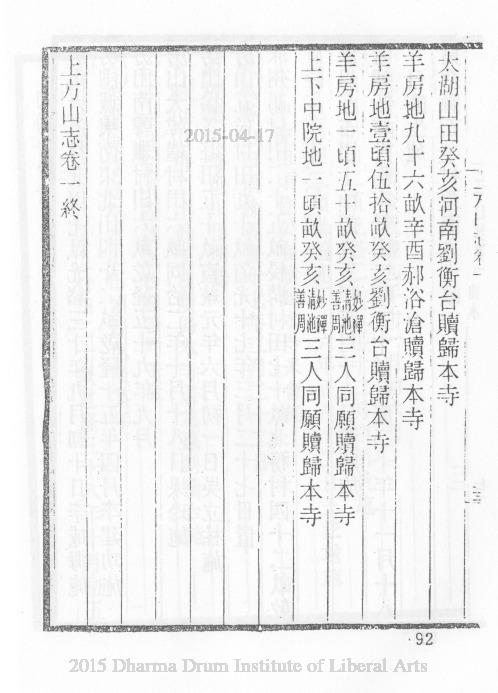 太湖山田癸亥河南劉衡台贖歸本寺
羊房地九十六畝辛酉郝浴滄贖歸本寺
羊房地壹頃伍拾畝癸亥劉衡台贖歸本寺
羊房地一頃五十畝癸亥妙禪清池善周三人同願贖歸本寺
上下中院地一頃畝癸亥妙禪清池善周三人同願贖歸本寺
上方山志卷一終
92
2015-04-17
2015 Dharma Drum Institute of Liberal Arts